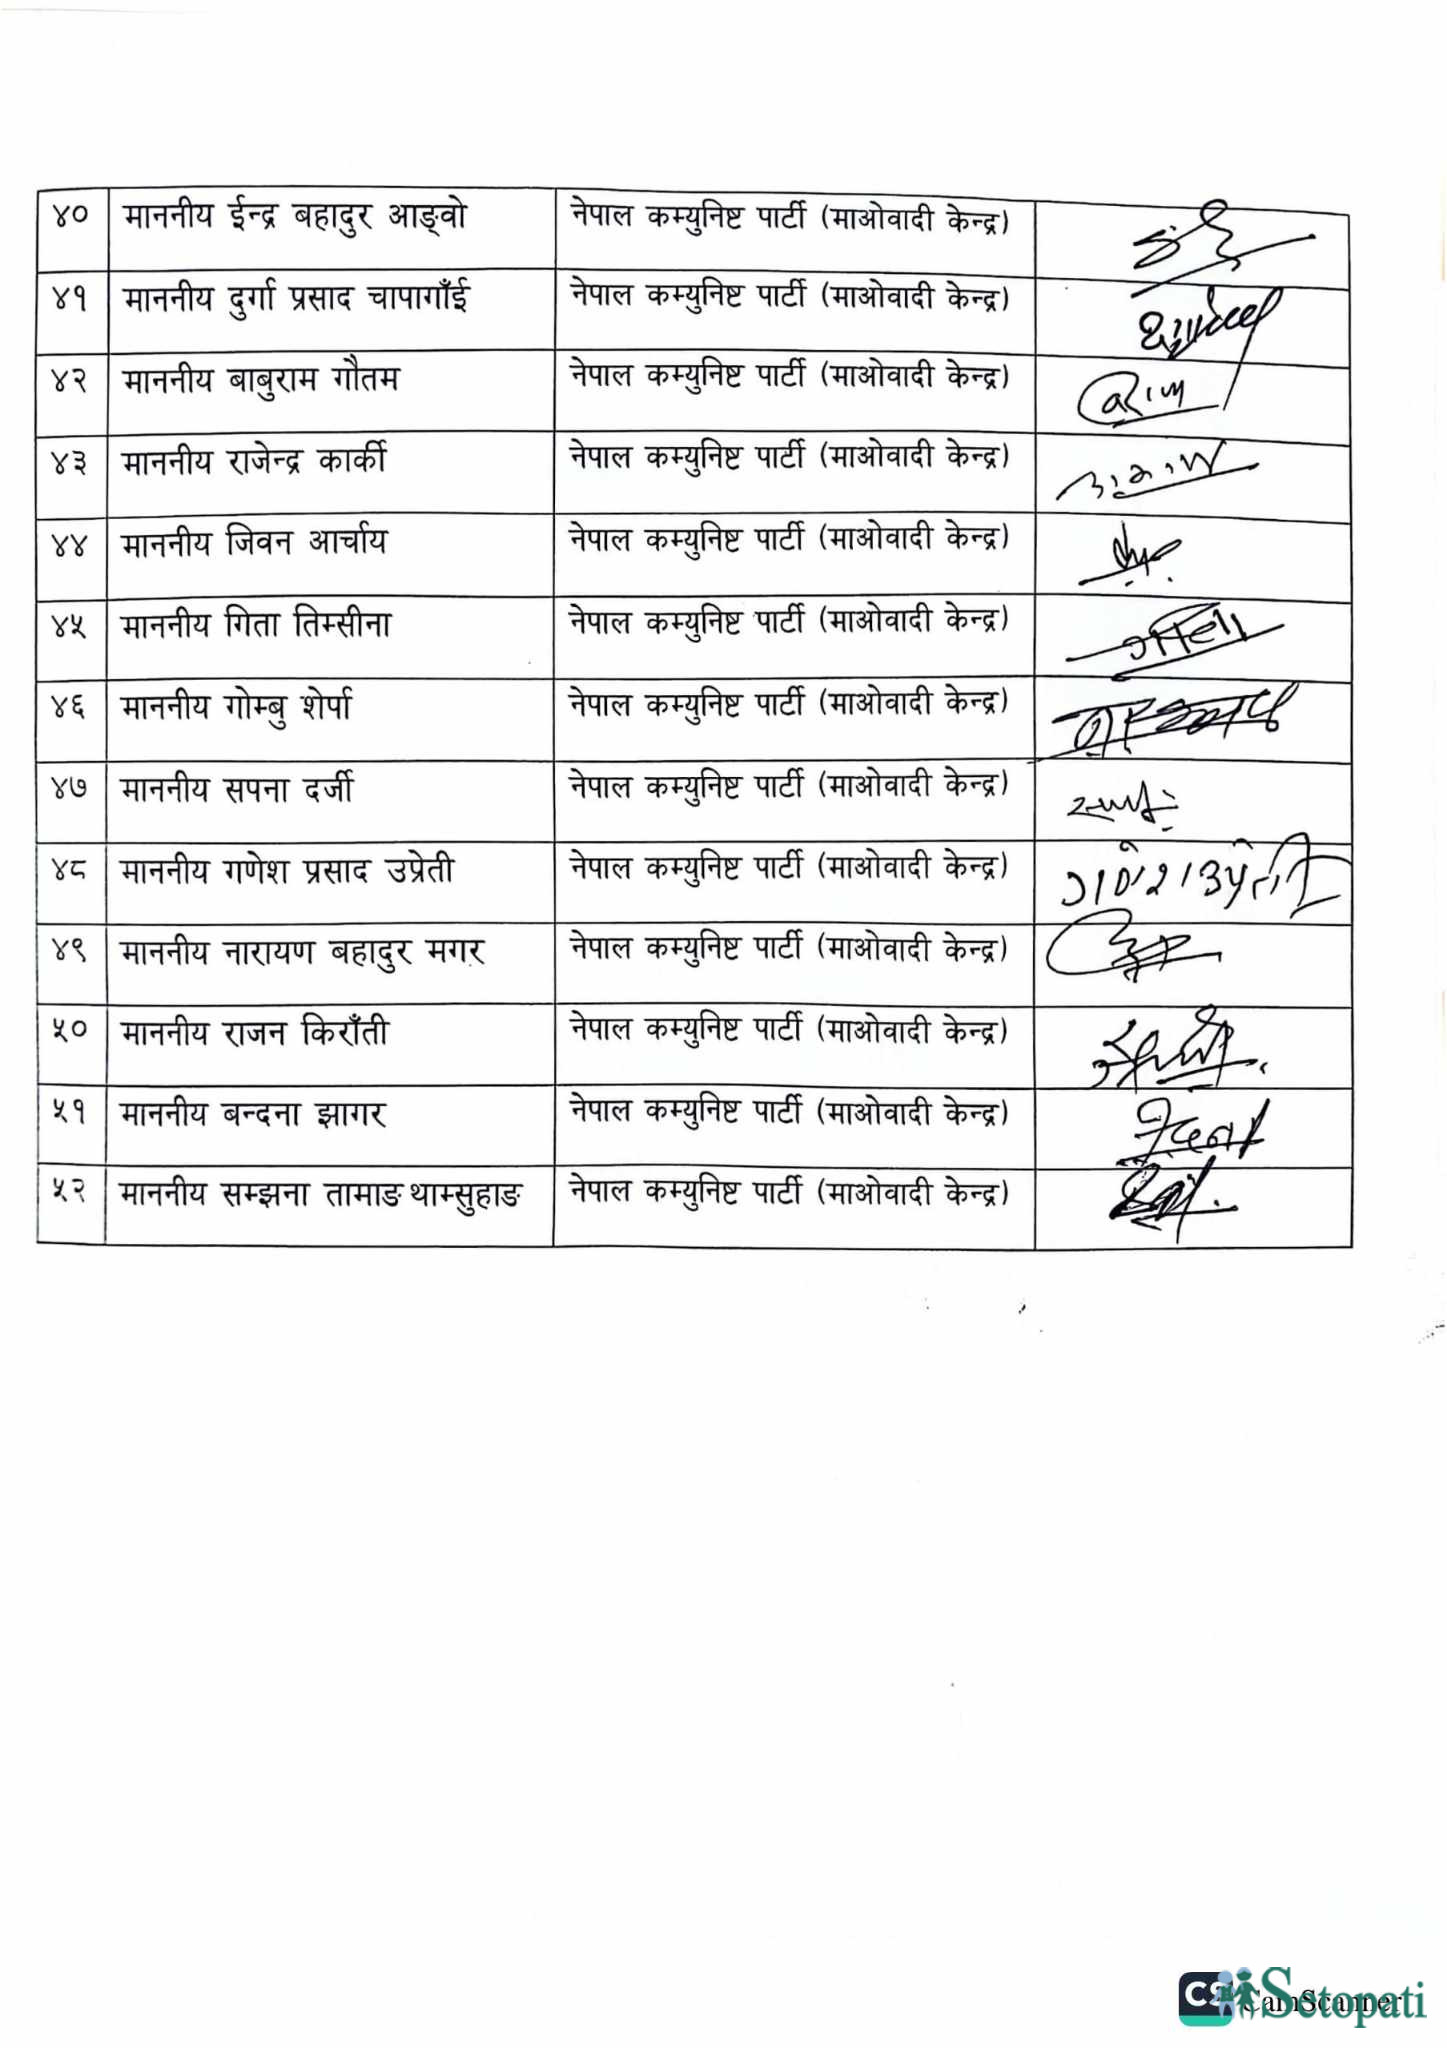 ४० माननीय ईन्द्र बहादुर आङ्वो नेपाल कम्युनिष्ट पार्टी (माओवादी केन्द्र)
४१ माननीय दुर्गा प्रसाद चापागाँई नेपाल कम्युनिष्ट पार्टी (माओवादी केन्द्र)
४२ माननीय बाबुराम गौतम नेपाल कम्युनिष्ट पार्टी (माओवादी केन्द्र)
४३ माननीय राजेन्द्र कार्की नेपाल कम्युनिष्ट पार्टी (माओवादी केन्द्र)
४४ माननीय जिवन आर्चाय नेपाल कम्युनिष्ट पार्टी (माओवादी केन्द्र)
४५ माननीय गिता तिम्सीना नेपाल कम्युनिष्ट पार्टी (माओवादी केन्द्र)
४६ माननीय गोम्बु शेर्पा नेपाल कम्युनिष्ट पार्टी (माओवादी केन्द्र)
४७ माननीय सपना दर्जी नेपाल कम्युनिष्ट पार्टी (माओवादी केन्द्र)
४८ माननीय गणेश प्रसाद उप्रेती नेपाल कम्युनिष्ट पार्टी (माओवादी केन्द्र) गणेश उप्रेती
४९ माननीय नारायण बहादुर मगर नेपाल कम्युनिष्ट पार्टी (माओवादी केन्द्र)
५० माननीय राजन किराँती नेपाल कम्युनिष्ट पार्टी (माओवादी केन्द्र)
५१ माननीय बन्दना झागर नेपाल कम्युनिष्ट पार्टी (माओवादी केन्द्र)
५२ माननीय सम्झना तामाङ थाम्सुहाङ नेपाल कम्युनिष्ट पार्टी (माओवादी केन्द्र)
CS CamScanner
Setopati